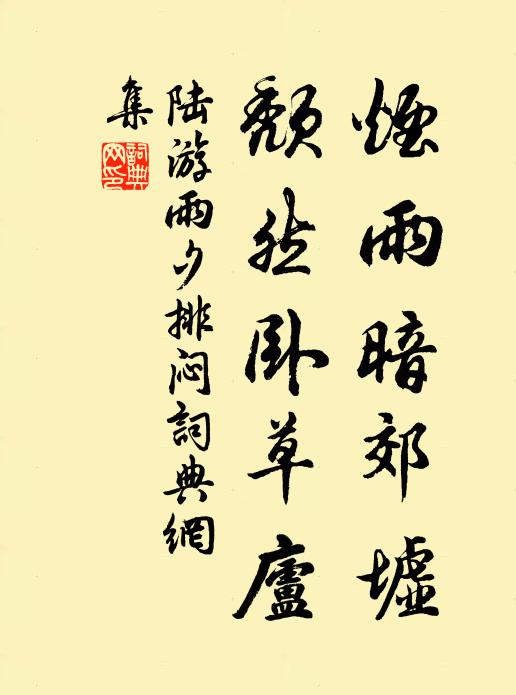 煙雨暗郊墟
頹然卧草廬
陆游雨夕排闷詞典網
集
詞典網印